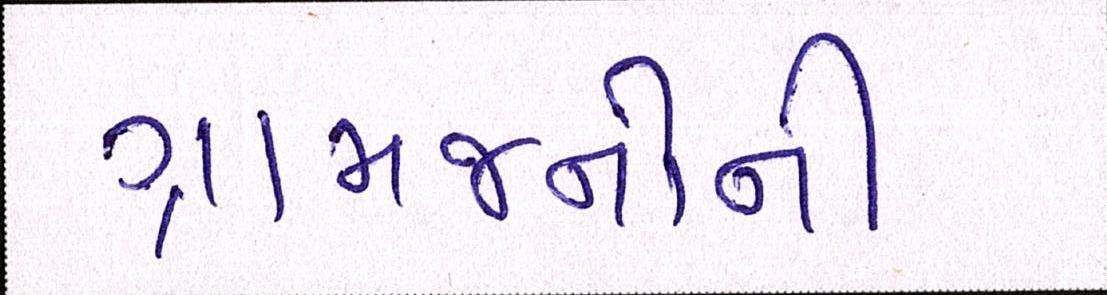 ગ્રામજનોની